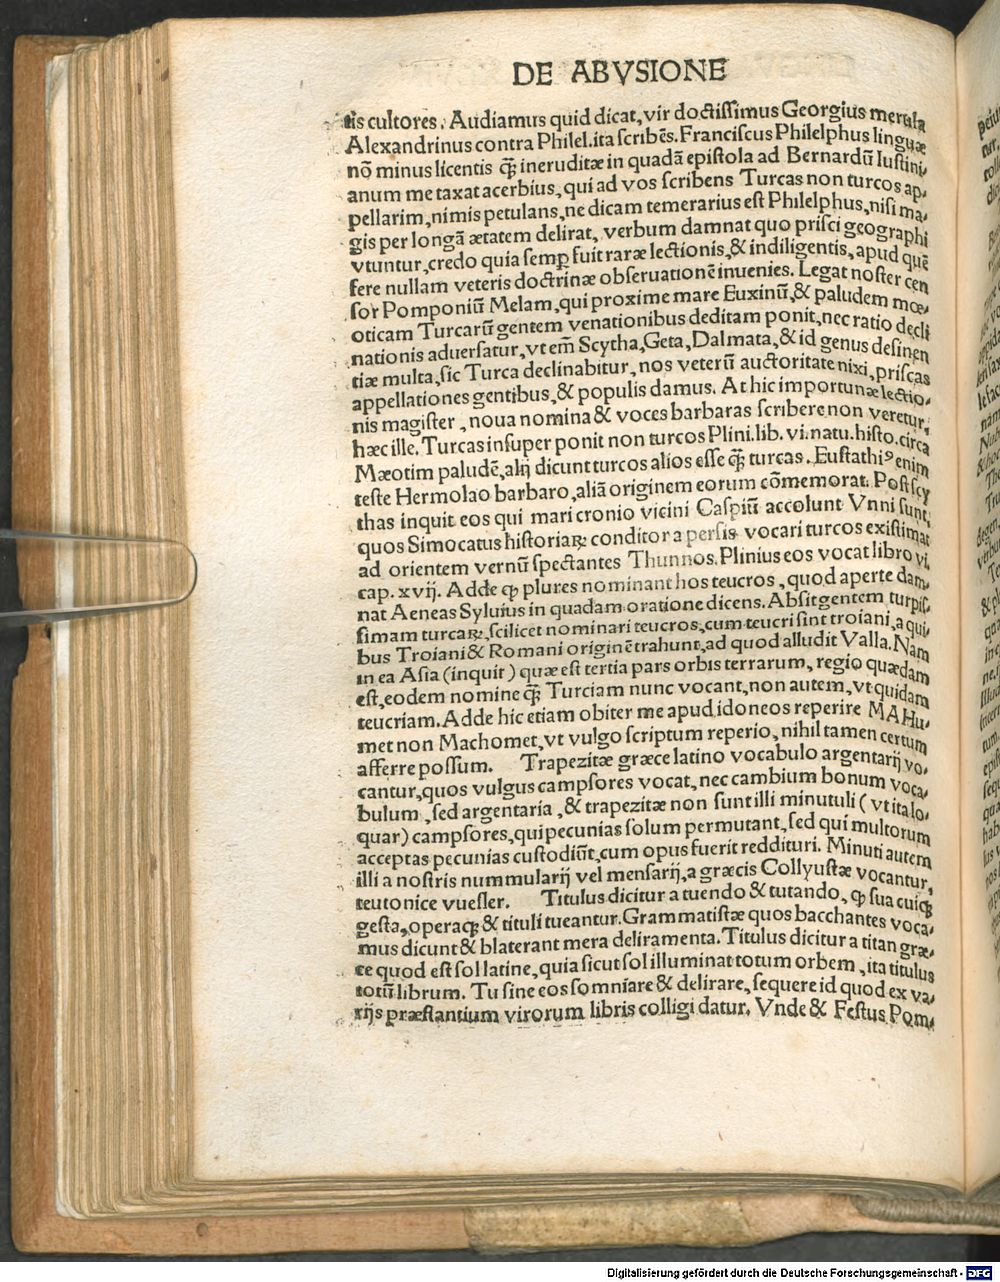 DE ABVSIONE
tis cultores. Audiamus quid dicat, vir doctissimus Georgius merula
Alexandrinus contra Philel. ita scribẽs. Franciscus Philelphus linguæ
nõ minus licentis q̃ ineruditæ in quadã epistola ad Bernardũ Iustini,
anum me taxat acerbius, qui ad vos scribens Turcas non turcos ap,
pellarim, nimis petulans, ne dicam temerarius est Philelphus, nisi ma,
gis per longã ætatem delirat, verbum damnat quo prisci geographi
vtuntur, credo quia semꝑ fuit raræ lectionis, & indiligentis, apud quẽ
fere nullam veteris doctrinæ obseruationẽ inuenies. Legat noster cen
sor Pomponiũ Melam, qui proxime mare Euxinũ, & paludem mœ,
oticam Turcarũ gentem venationibus deditam ponit, nec ratio decli
nationis aduersatur, vt em̃ Scytha, Geta, Dalmata, & id genus desinen
tiæ multa, sic Turca declinabitur, nos veterũ auctoritate nixi, priscas
appellationes gentibus, & populis damus. At hic importunæ lectio,
nis magister, noua nomina & voces barbaras scribere non veretur,
hæc ille. Turcas insuper ponit non turcos Plini. lib. vi. natu. histo. circa
Mæotim paludẽ, alij dicunt turcos alios esse q̃ turcas. Eustathiꝰ enim
teste Hermolao barbaro, aliã originem eorum cõmemorat. Post scy
thas inquit eos qui mari cronio vicini Caspiũ accolunt Vnni sunt,
quos Simocatus historiaꝝ conditor a persis vocari turcos existimat
ad orientem vernũ spectantes Thunnos. Plinius eos vocat libro vi.
cap. xvij. Adde ꝙ plures nominant hos teucros, quod aperte dam,
nat Aeneas Syluius in quadam oratione dicens. Absit gentem turpis,
simam turcaꝝ, scilicet nominari teucros, cum teucri sint troiani, a qui,
bus Troiani & Romani originẽ trahunt, ad quod alludit Valla. Nam
in ea Asia (inquit) quæ est tertia pars orbis terrarum, regio quædam
est, eodem nomine q̃ Turciam nunc vocant, non autem, vt quidam
teucriam. Adde hic etiam obiter me apud idoneos reperire MAHu,
met non Machomet, vt vulgo scriptum reperio, nihil tamen certum
afferre possum. Trapezitæ græce latino vocabulo argentarij vo,
cantur, quos vulgus campsores vocat, nec cambium bonum voca,
bulum, sed argentaria, & trapezitæ non sunt illi minutuli (vt ita lo,
quar) campsores, qui pecunias solum permutant, sed qui multorum
acceptas pecunias custodiũt, cum opus fuerit reddituri. Minuti autem
illi a nostris nummularij vel mensarij, a græcis Collyustæ vocantur,
teutonice vuesler. Titulus dicitur a tuendo & tutando, ꝙ sua cuiꝗ
gesta, operaꝗ & tituli tueantur. Grammatistæ quos bacchantes voca,
mus dicunt & blaterant mera deliramenta. Titulus dicitur a titan græ,
ce quod est sol latine, quia sicut sol illuminat totum orbem, ita titulus
totũ librum. Tu sine eos somniare & delirare, sequere id quod ex va,
rijs præstantium virorum libris colligi datur. Vnde & Festus Pom,
Digitalisierung gefördert durch die Deutsche Forschungsgemeinschaft - DFG